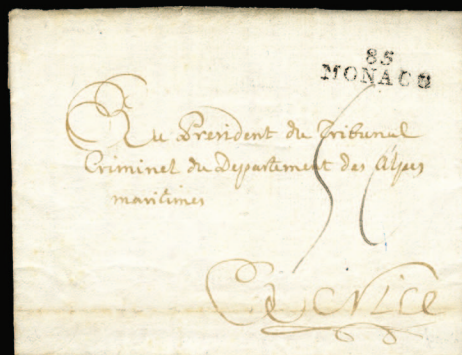 85
MONACO
Au President du Tribunal
Criminel du Departement des Alpes
maritimes
A Nice